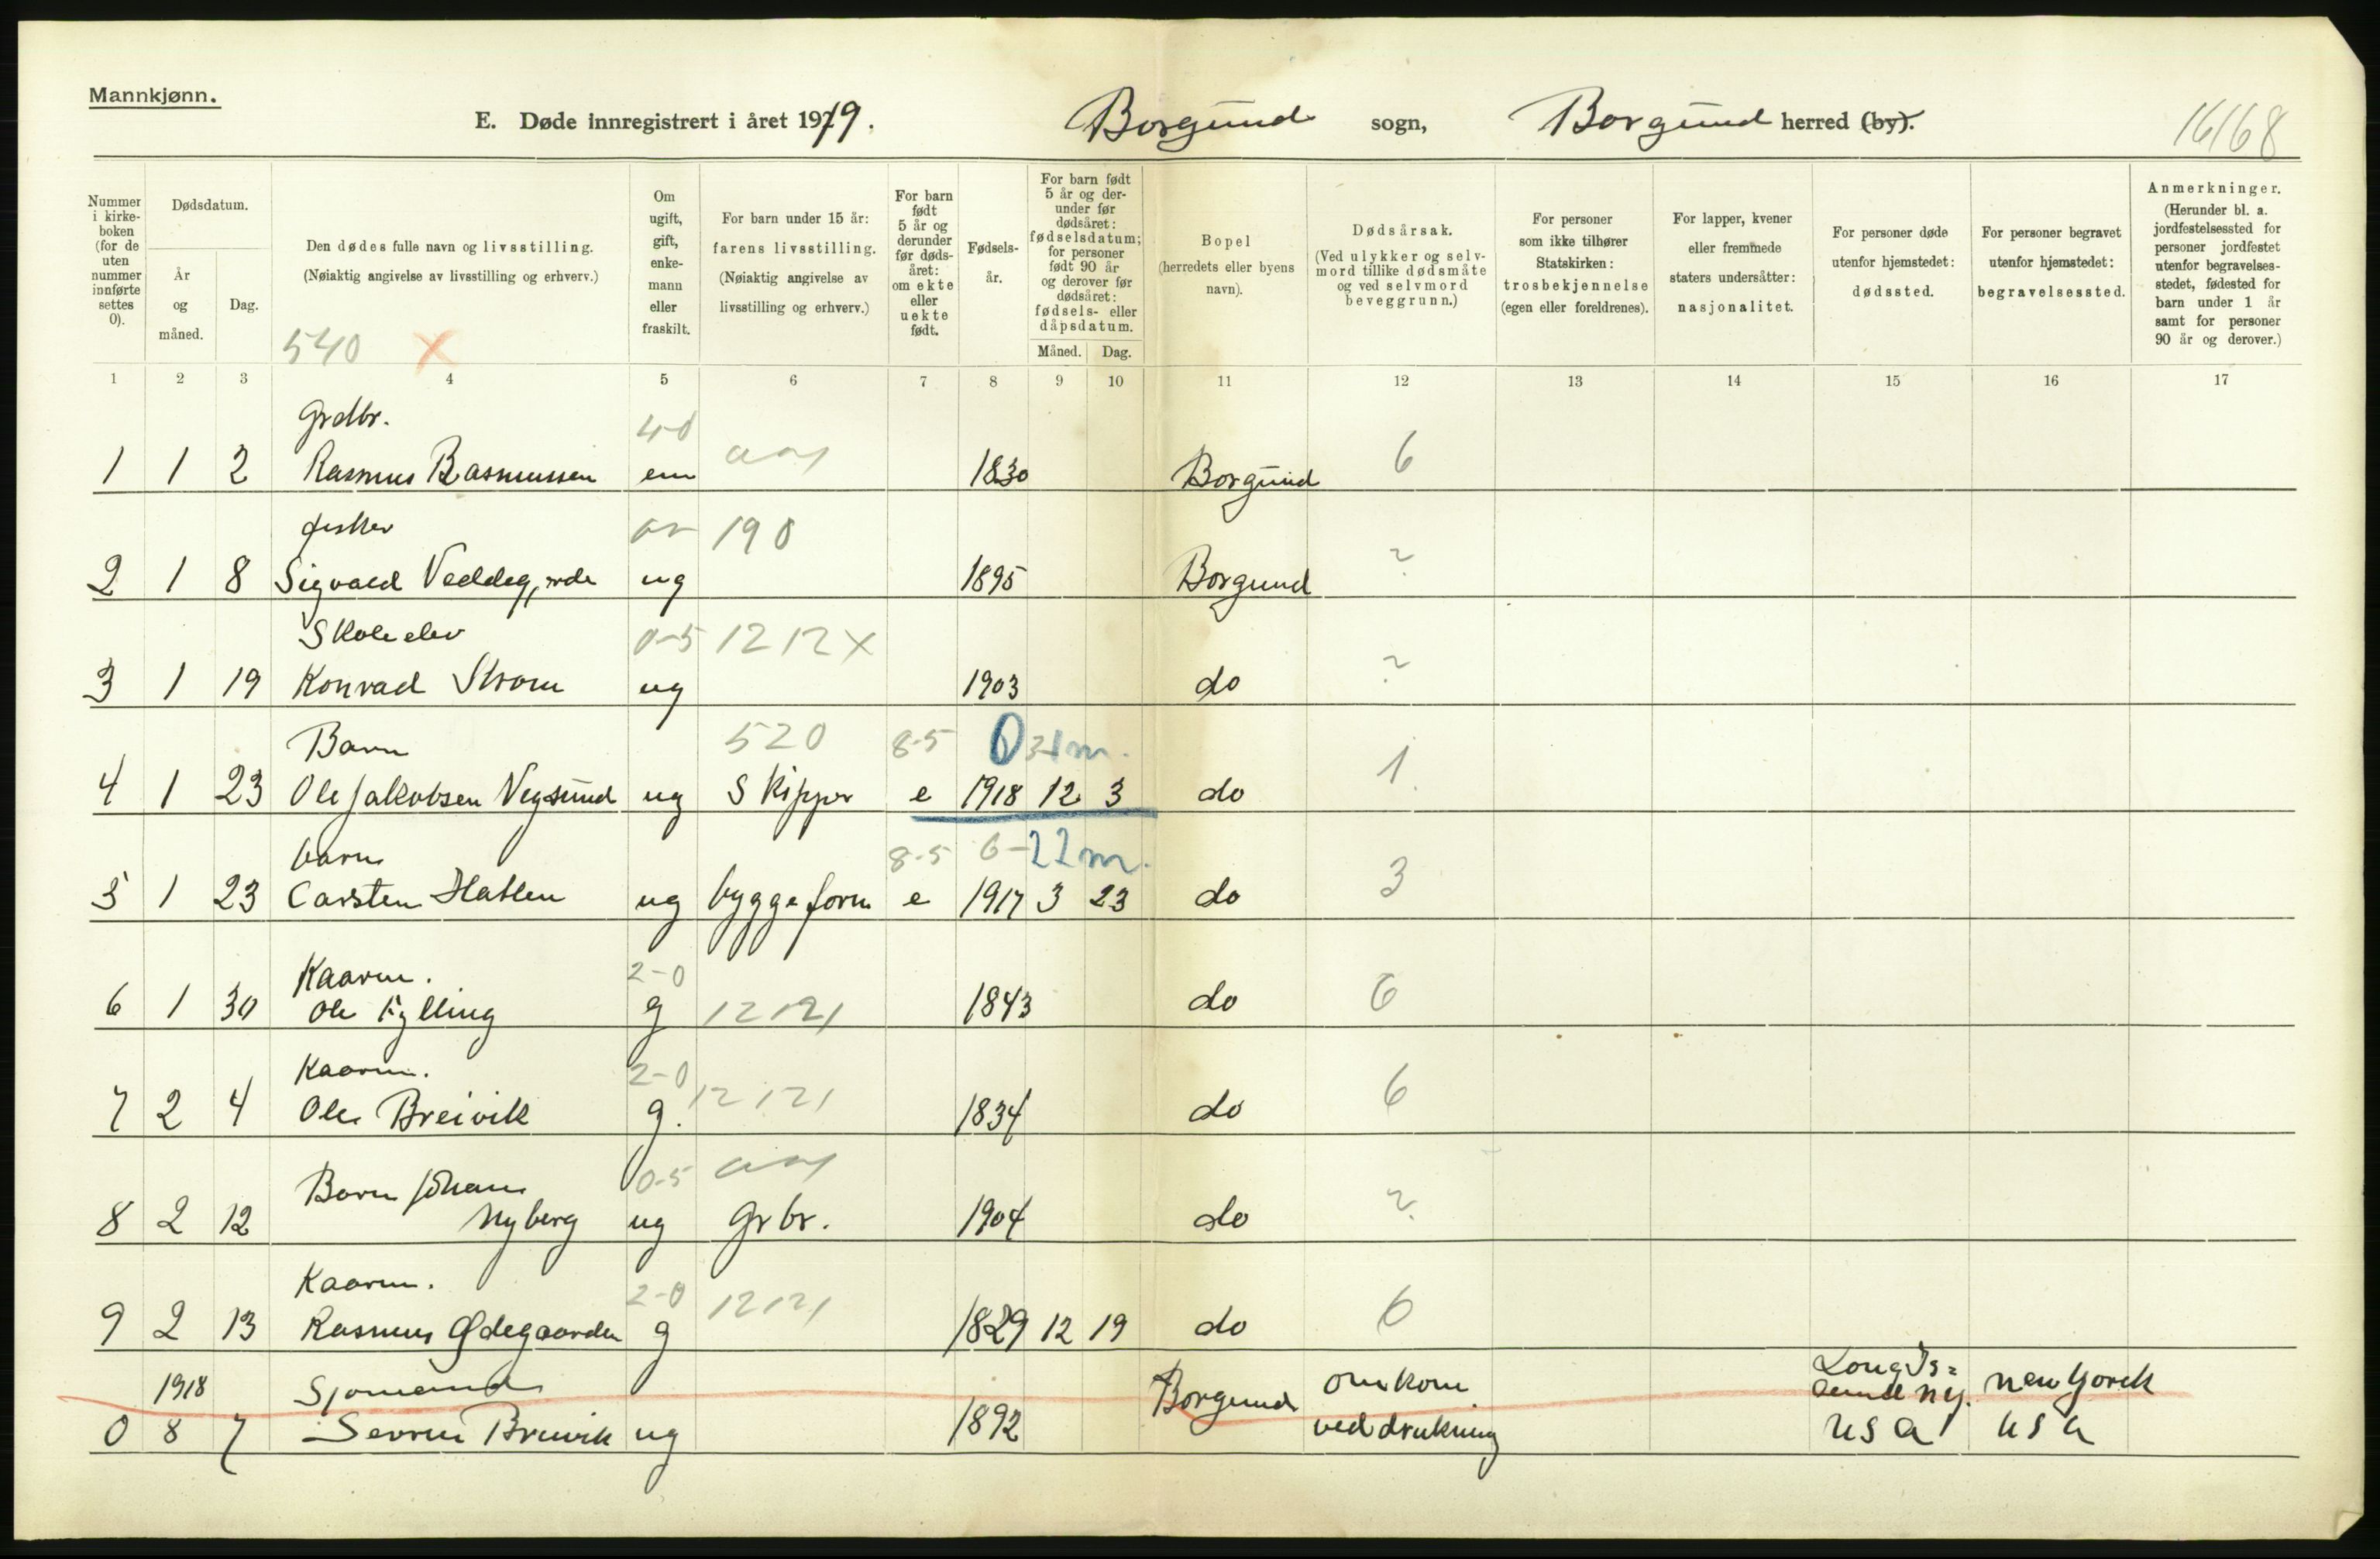 Mannkjønn.
E. Døde innregistrert i året 1919. Borgund sogn, Borgund herred (by). 16168
Nummer i kirke-boken (for de uten nummer innførte settes 0).
Dødsdatum.
År og måned.
Dag.
Den dødes fulle navn og livsstilling.
(Nøiaktig angivelse av livsstilling og erhverv.)
540 X
Om ugift, gift, enke-mann eller fraskilt.
For barn under 15 år: farens livsstilling.
(Nøiaktig angivelse av livsstilling og erhverv.)
For barn født 5 år og derunder før døds-året: om ekte eller uekte født.
Fødsels-år.
For barn født 5 år og der-under før dødsåret: fødselsdatum; for personer født 90 år og derover før dødsåret: fødsels- eller dåpsdatum.
Måned. Dag.
Bopel
(herredets eller byens navn).
Dødsårsak.
(Ved ulykker og selv-mord tillike dødsmåte og ved selvmord beveggrunn.)
For personer som ikke tilhører Statskirken: trosbekjennelse (egen eller foreldrenes).
For lapper, kvener eller fremmede staters undersåtter: nasjonalitet.
For personer døde utenfor hjemstedet: dødssted.
For personer begravet utenfor hjemstedet: begravelsessted.
Anmerkninger.
(Herunder bl. a. jordfestelsessted for personer jordfestet utenfor begravelses-stedet, fødested for barn under 1 år samt for personer 90 år og derover.)
1 2 3 4 5 6 7 8 9 10 11 12 13 14 15 16 17
Grdbr. 4-0
1 1 2 Rasmus Rasmussen em 1830 Borgund 6
fisker 190
2 1 8 Sigvald ug 1895 Borgund ?
Skoleelev 0-5 1212X
3 1 19 Konrad Strom ug 1903 do ?
Barn 520 8-5 0 31m.
4 1 23 Ole Jakobsen Vegsund ug Skipper e 1918 12 3 do 1
barn 8-5 6-22m.
5 1 23 Carsten Hatlen ug byggeform e 1917 3 23 do 3
Kaarm. 2-0
6 1 30 Ole Fylling g 12121 1843 do 6
Kaarm. 2-0
7 2 4 Ole Breivik g. 12121 1834 do 6
Barn Johan 0-5
8 2 12 Nyberg ug Grbr. 1904 do ?
Kaarm. 2-0 12121
9 2 13 Rasmus Ødegaarden g 1829 12 19 do 6
1918 Sjomand Borgund omkom Long Is= new Yorck
0 8 7 Breivik ug 1892 ved drukning NY. USA USA